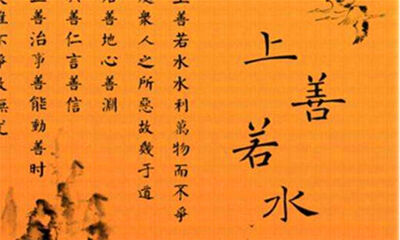 上善若水
上善若水水利萬物而不爭
處衆人之所惡故幾于道
居善地心善淵
與善仁言善信
正善治事善能動善时